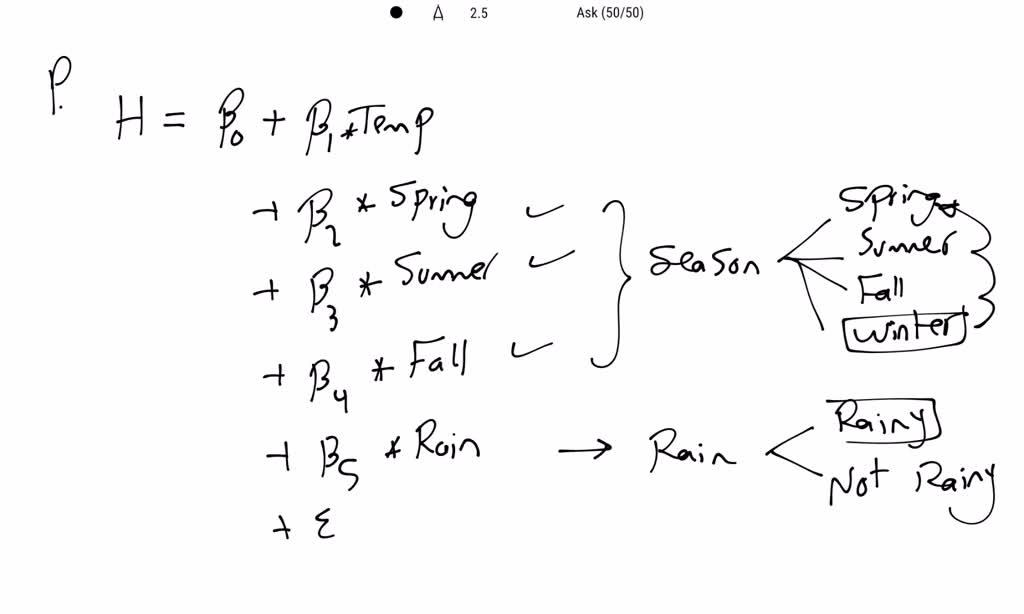 A 2.5 Ask (50/50)
P.
H = β0 + β1*Temp
+ β2 * Spring
+ β3 * Summer
+ β4 * Fall
+ β5 * Rain
+ ε
Season
Spring
Summer
Fall
Winter
→ Rain
Rainy
Not Rainy